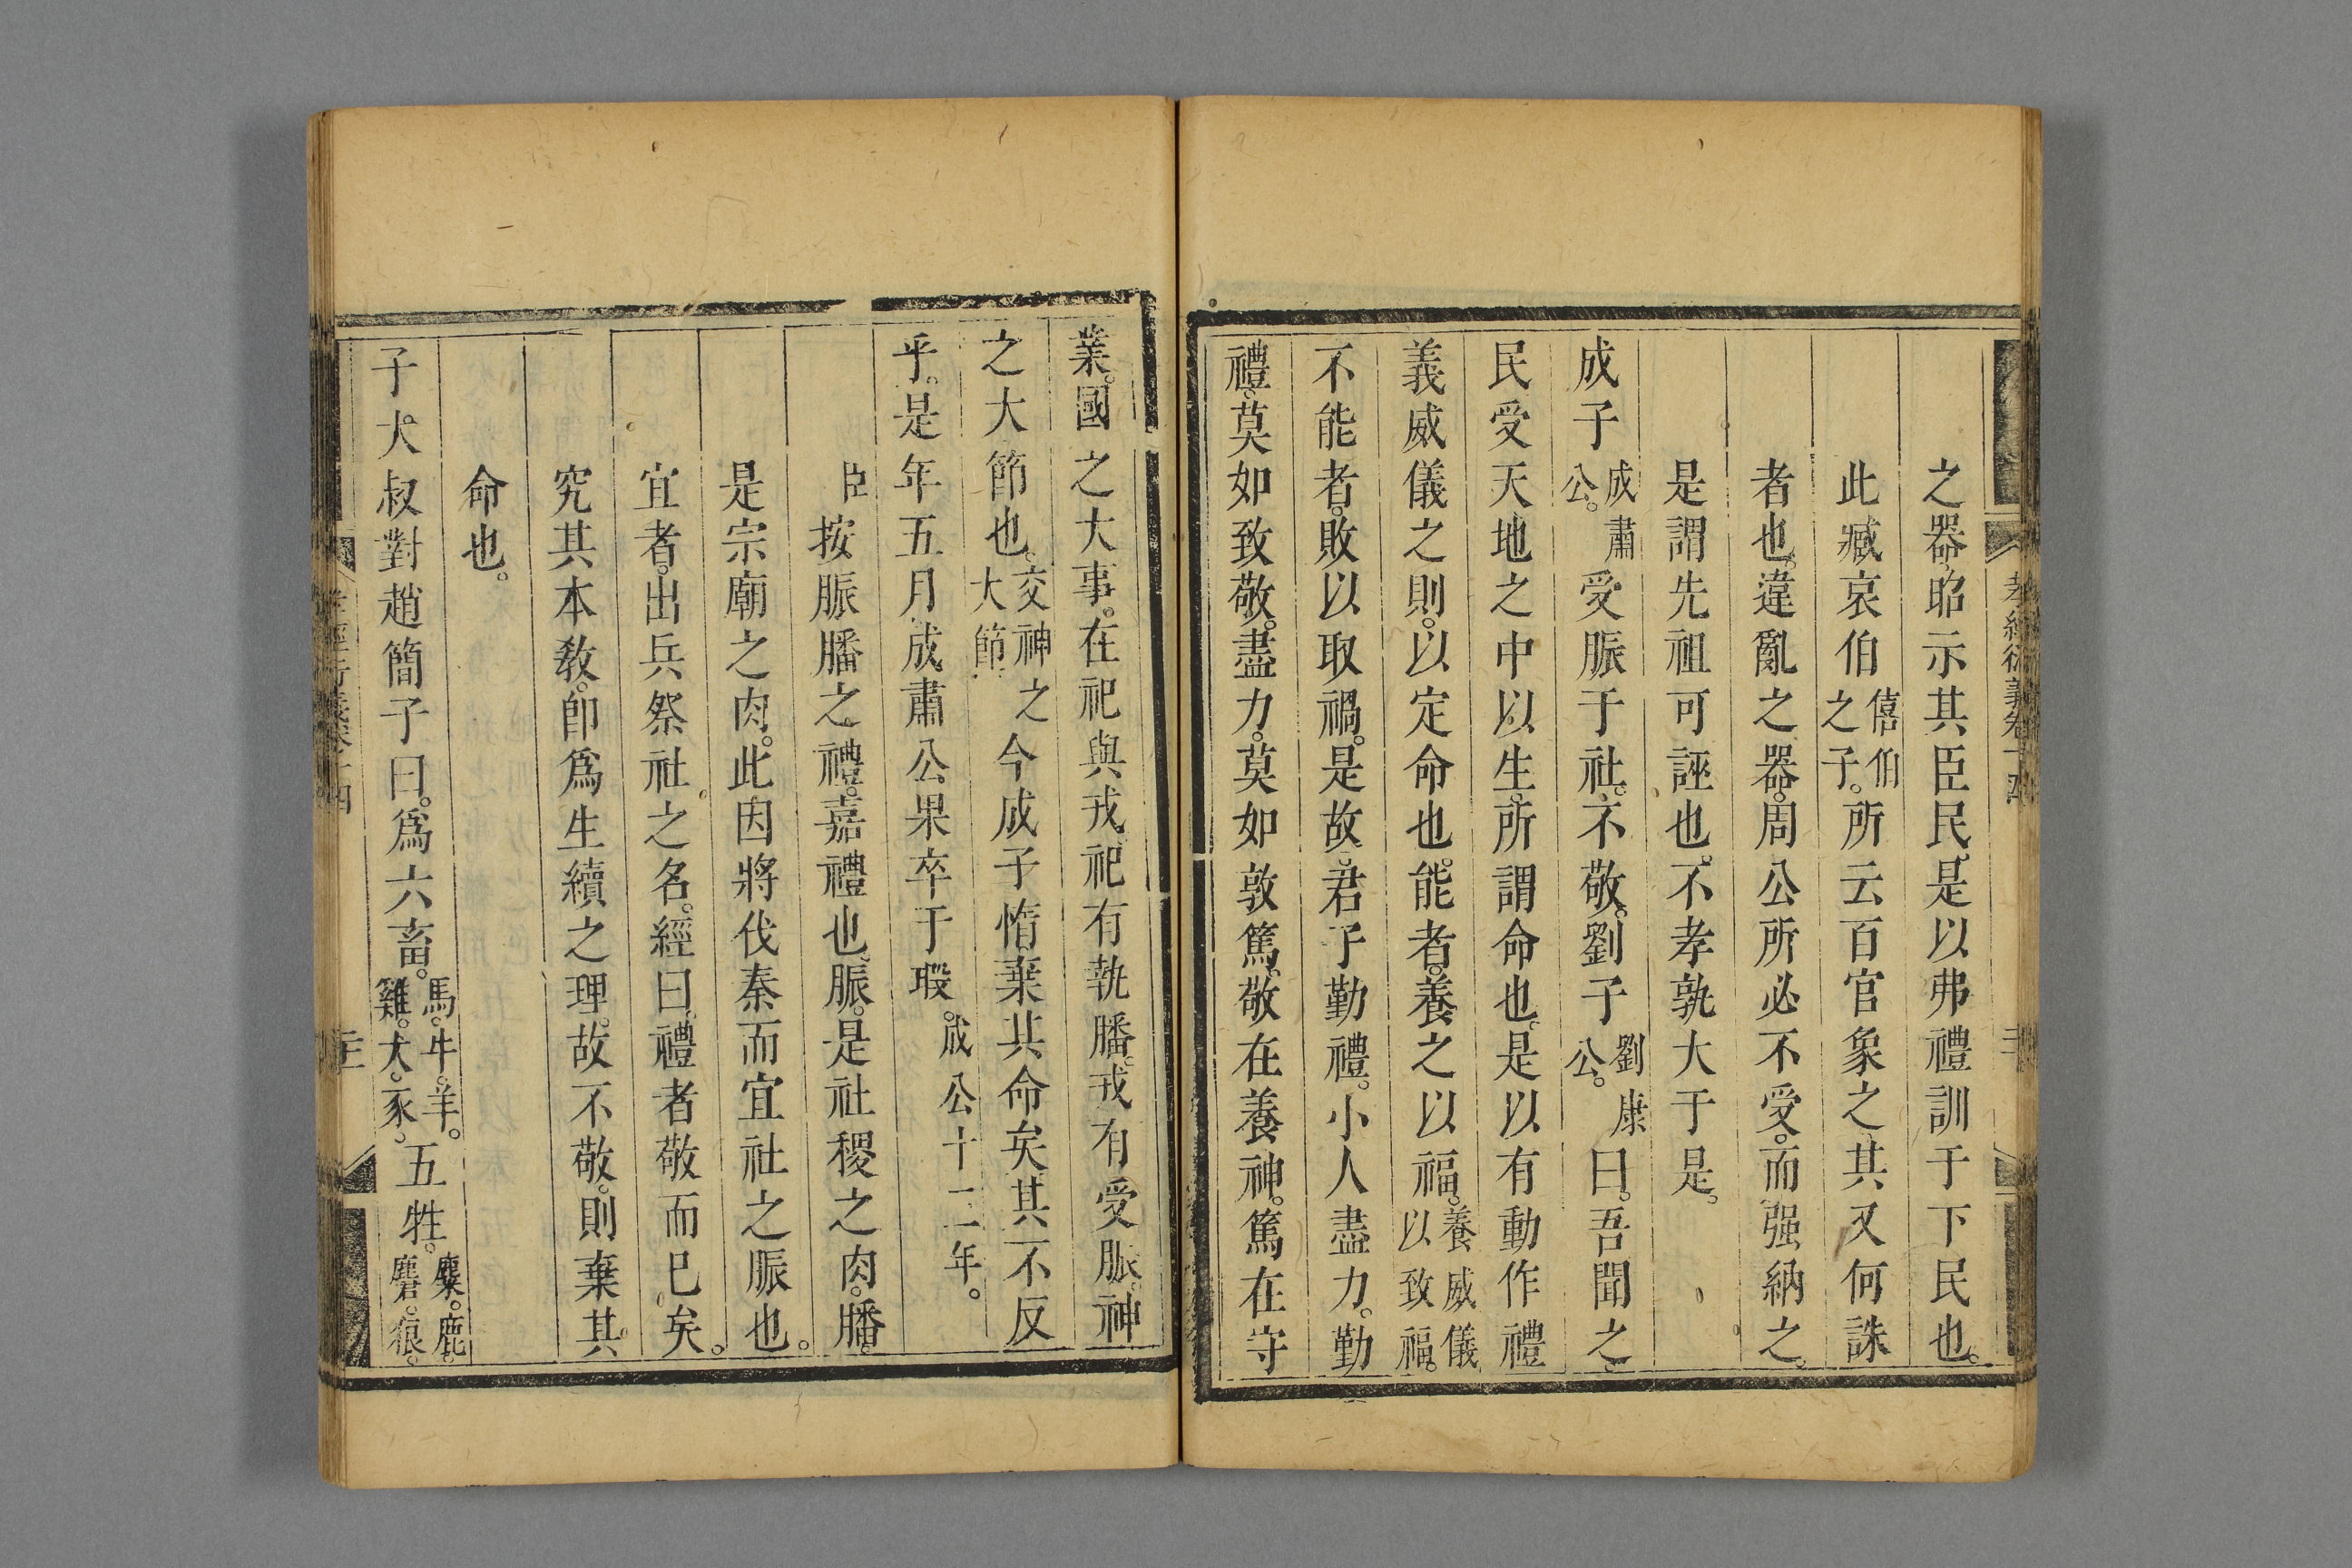 孝經衍義卷十四
之器。昭示其臣民。是以弗禮訓于下民也。
此臧哀伯僖伯之子。所云百官象之。其又何誅
者也。違亂之器。周公所必不受。而强納之。
是謂先祖可誣也。不孝孰大于是。
成子成肅公。受脤于社。不敬。劉子劉康公。曰。吾聞之。
民受天地之中以生。所謂命也。是以有動作禮
義威儀之則。以定命也。能者。養之以福。養威儀以致福。
不能者。敗以取禍。是故。君子勤禮。小人盡力。勤
禮。莫如致敬。盡力。莫如敦篤。敬在養神。篤在守
業。國之大事。在祀與戎。祀有執膰。戎有受脤。神
之大節也。交神之大節。今成子惰。棄其命矣。其不反
乎。是年五月。成肅公果卒于瑕。成公十三年。
臣按脤膰之禮。嘉禮也。脤。是社稷之肉。膰。
是宗廟之肉。此因將伐秦而宜社之脤也。
宜者。出兵祭社之名。經曰。禮者敬而已矣。
究其本教。即爲生續之理。故不敬。則棄其
命也。
子太叔對趙簡子曰。爲六畜。馬。牛。羊。雞。犬。豕。五牲。麋。鹿。麏。狼。